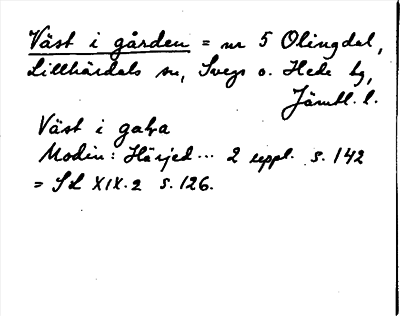 Väst i gården = nr 5 Olingdal,
Lillhärdals sn, Svegs o. Hede tg,
Jämtl. l.
Väst i gaḷa
Modin: Härjed... 2 uppl. s. 142
= SL XIX. 2 s. 126.